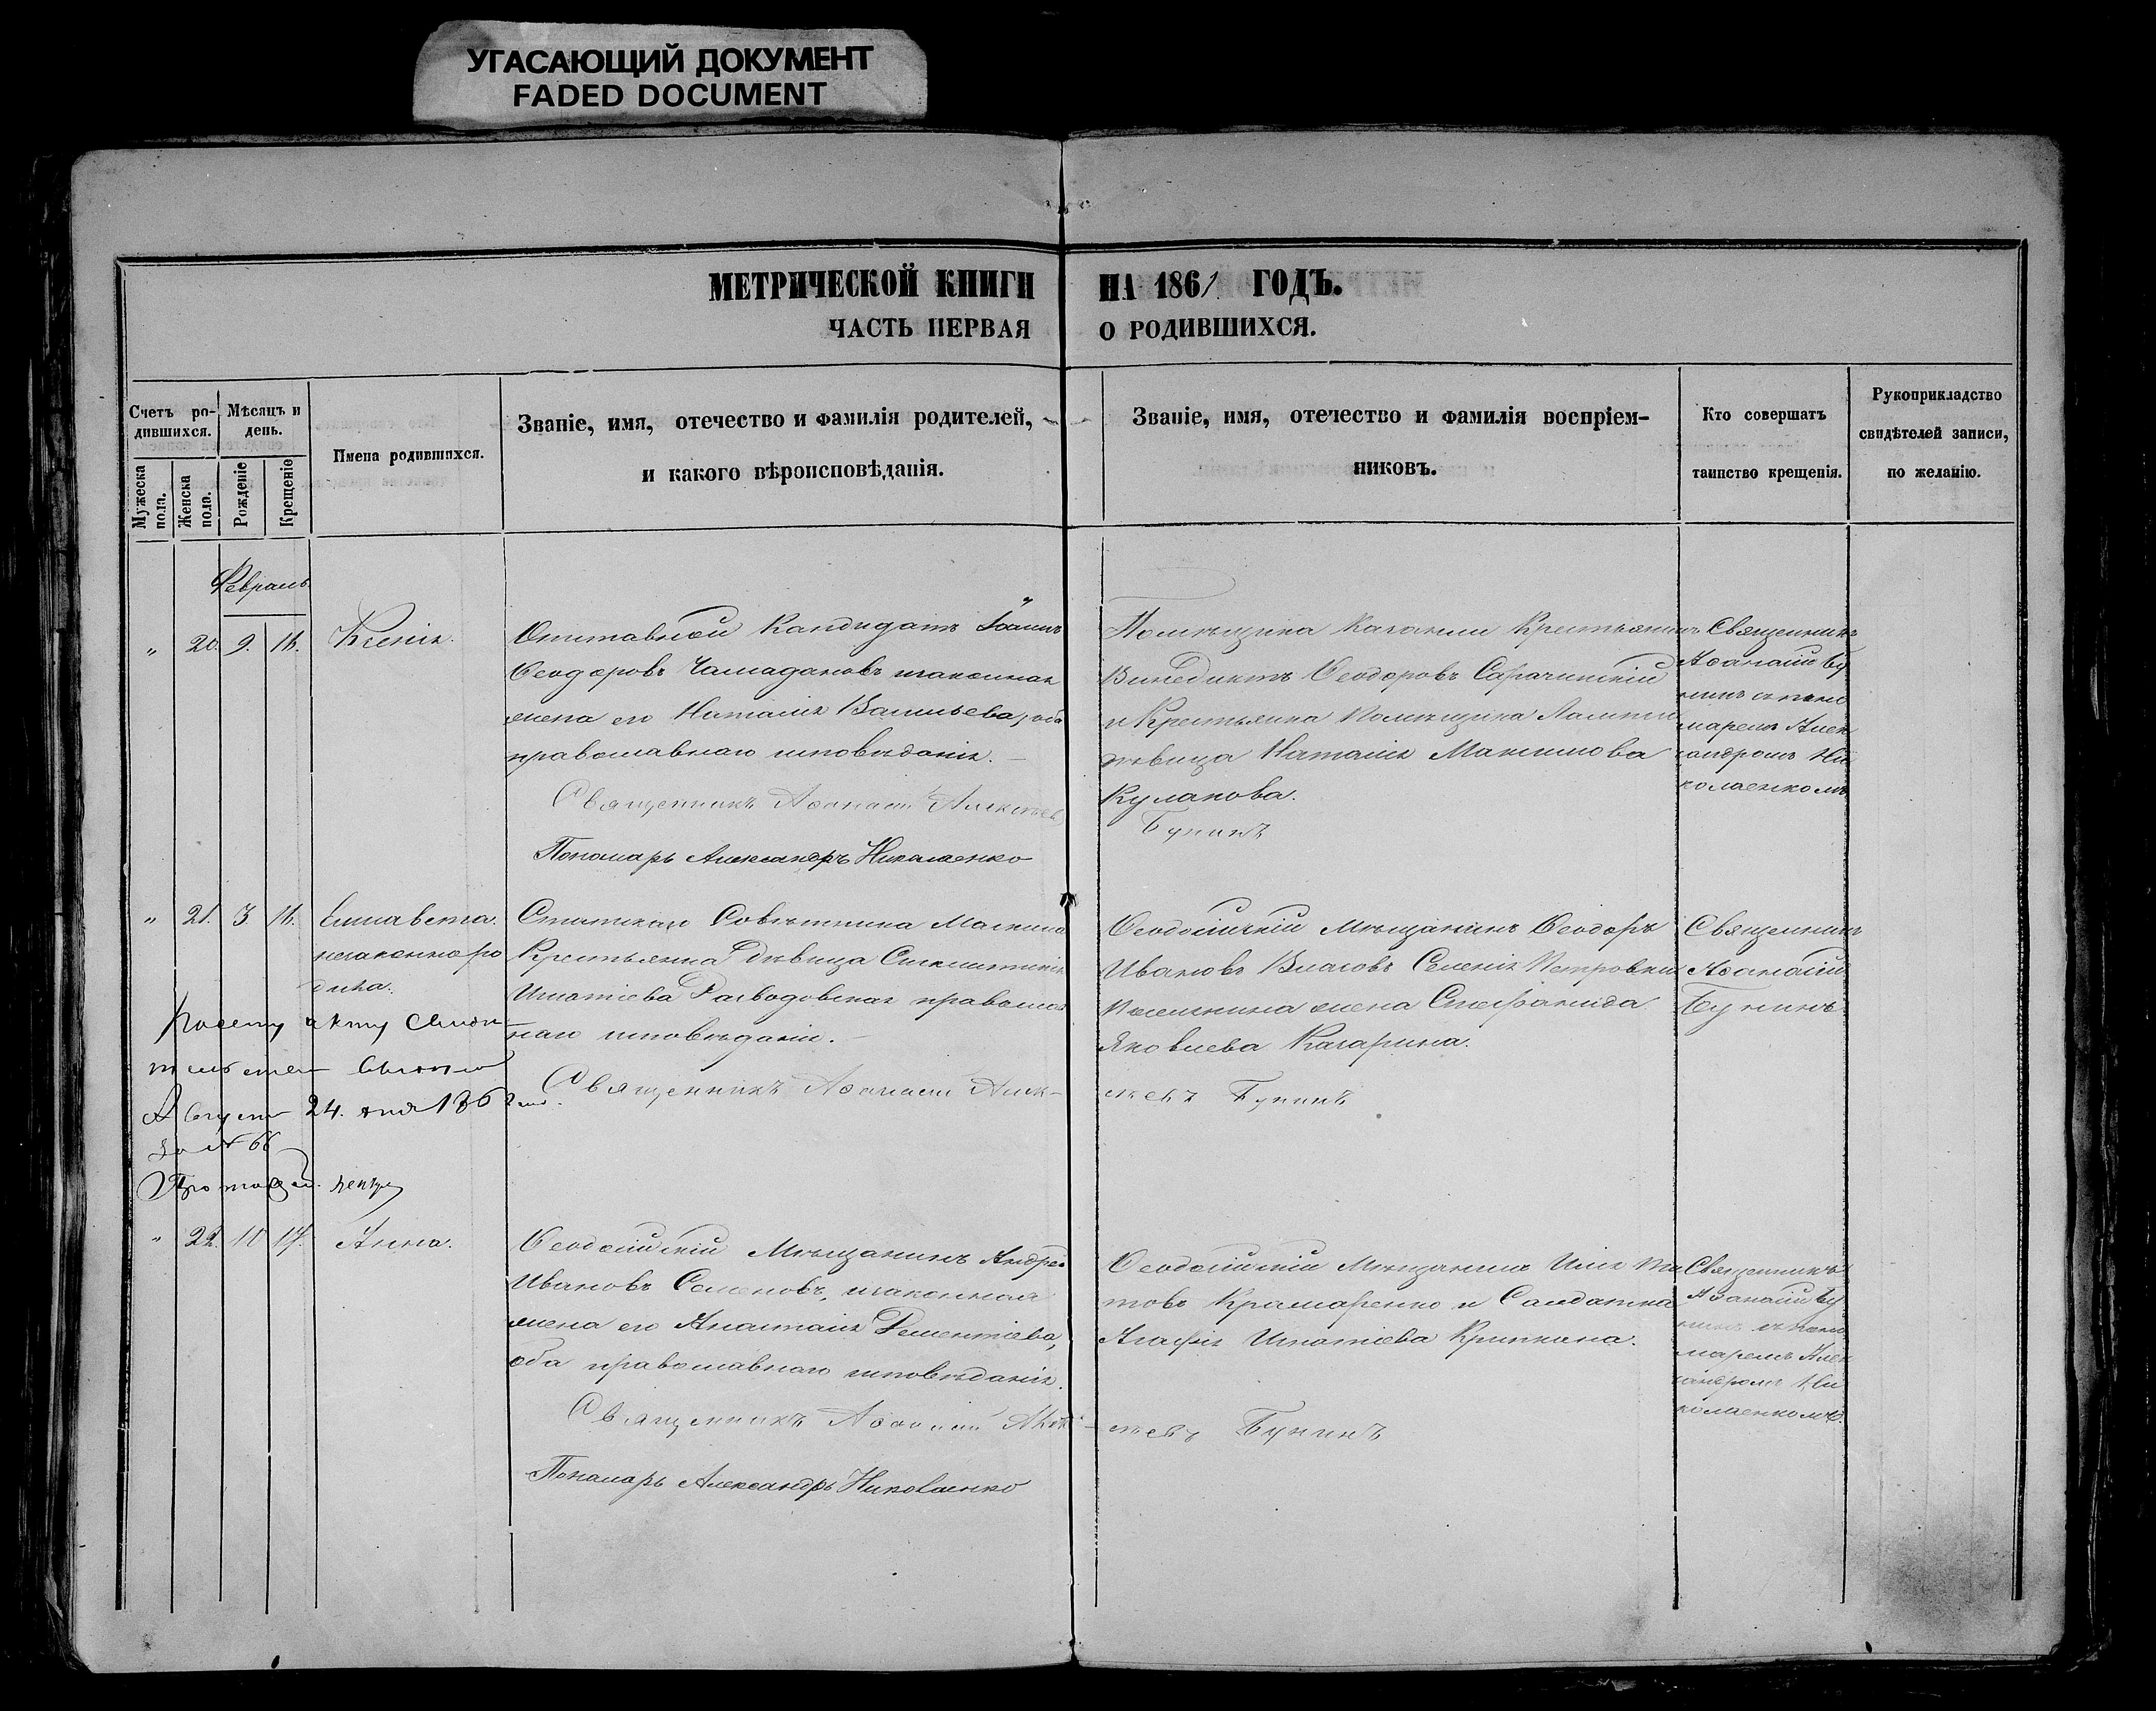 УГАСАЮЩИЙ ДОКУМЕНТ
FADED DOCUMENT
МЕТРИЧЕСКОЙ КНИГИ НА 1861 ГОДЪ.
ЧАСТЬ ПЕРВАЯ О РОДИВШИХСЯ.
Счетъ ро-
дившихся.
Мужеска пола.
Женска пола.
Мѣсяцъ и
день.
Рожденіе
Крещеніе
Имена родившихся.
Званіе, имя, отечество и фамилія родителей,
и какого вѣроисповѣданія.
Званіе, имя, отечество и фамилія воспріем-
никовъ.
Кто совершатъ
таинство крещенія.
Рукоприкладство
свидѣтелей записи,
по желанію.
Февраль
" 20. 9. 16. Ксенія.
Кандидатъ Іоаннъ
Ѳеодоровъ Чамадановъ законная
жена его Наталія Васильева, оба
православнаго исповѣданія.
Священникъ Аѳанасій Алексѣев
Пономарь Александръ Николаенко
Помѣщика Крестьянинъ
Винедиктъ Ѳеодоровъ
и Крестьянка Помѣщика
дѣвица Наталія Максимова
Кулакова.
Бунинъ
Священникъ
Аѳанасій Бу
нинъ съ поно
маремъ Алек
сандромъ Ни
колаенкомъ
" 21. 3 16. Елисавета.
незаконноро
дна.
Статскаго Совѣтника
Крестьянка дѣвица
Игнатіева православ
наго исповѣданія.
Священникъ Аѳанасій Алек-
Ѳеодосійскій Мѣщанинъ Ѳеодоръ
Ивановъ Власовъ Селенія Петровки
Поселянина жена Стефанида
Яковлева
сѣевъ Бунинъ
Священникъ
Аѳанасій
Бунинъ
по сему акту свидѣ
тельство выдано
Августа 24. дня 186
за № 66
" 22. 10 17. Анна.
Ѳеодосійскій Мѣщанинъ Андрей
Ивановъ Семеновъ, законная
жена его Анастасія Дементіева,
оба православнаго исповѣданія.
Священникъ Аѳанасій Алек-
Пономарь Александръ Николаенко
Ѳеодосійскій Мѣщанинъ Илія Ти
товъ Крамаренко и Солдатка
Агафія Игнатіева
сѣевъ Бунинъ
Священникъ
Аѳанасій Бу
нинъ съ поно
маремъ Алек
сандромъ Ни
колаенкомъ.